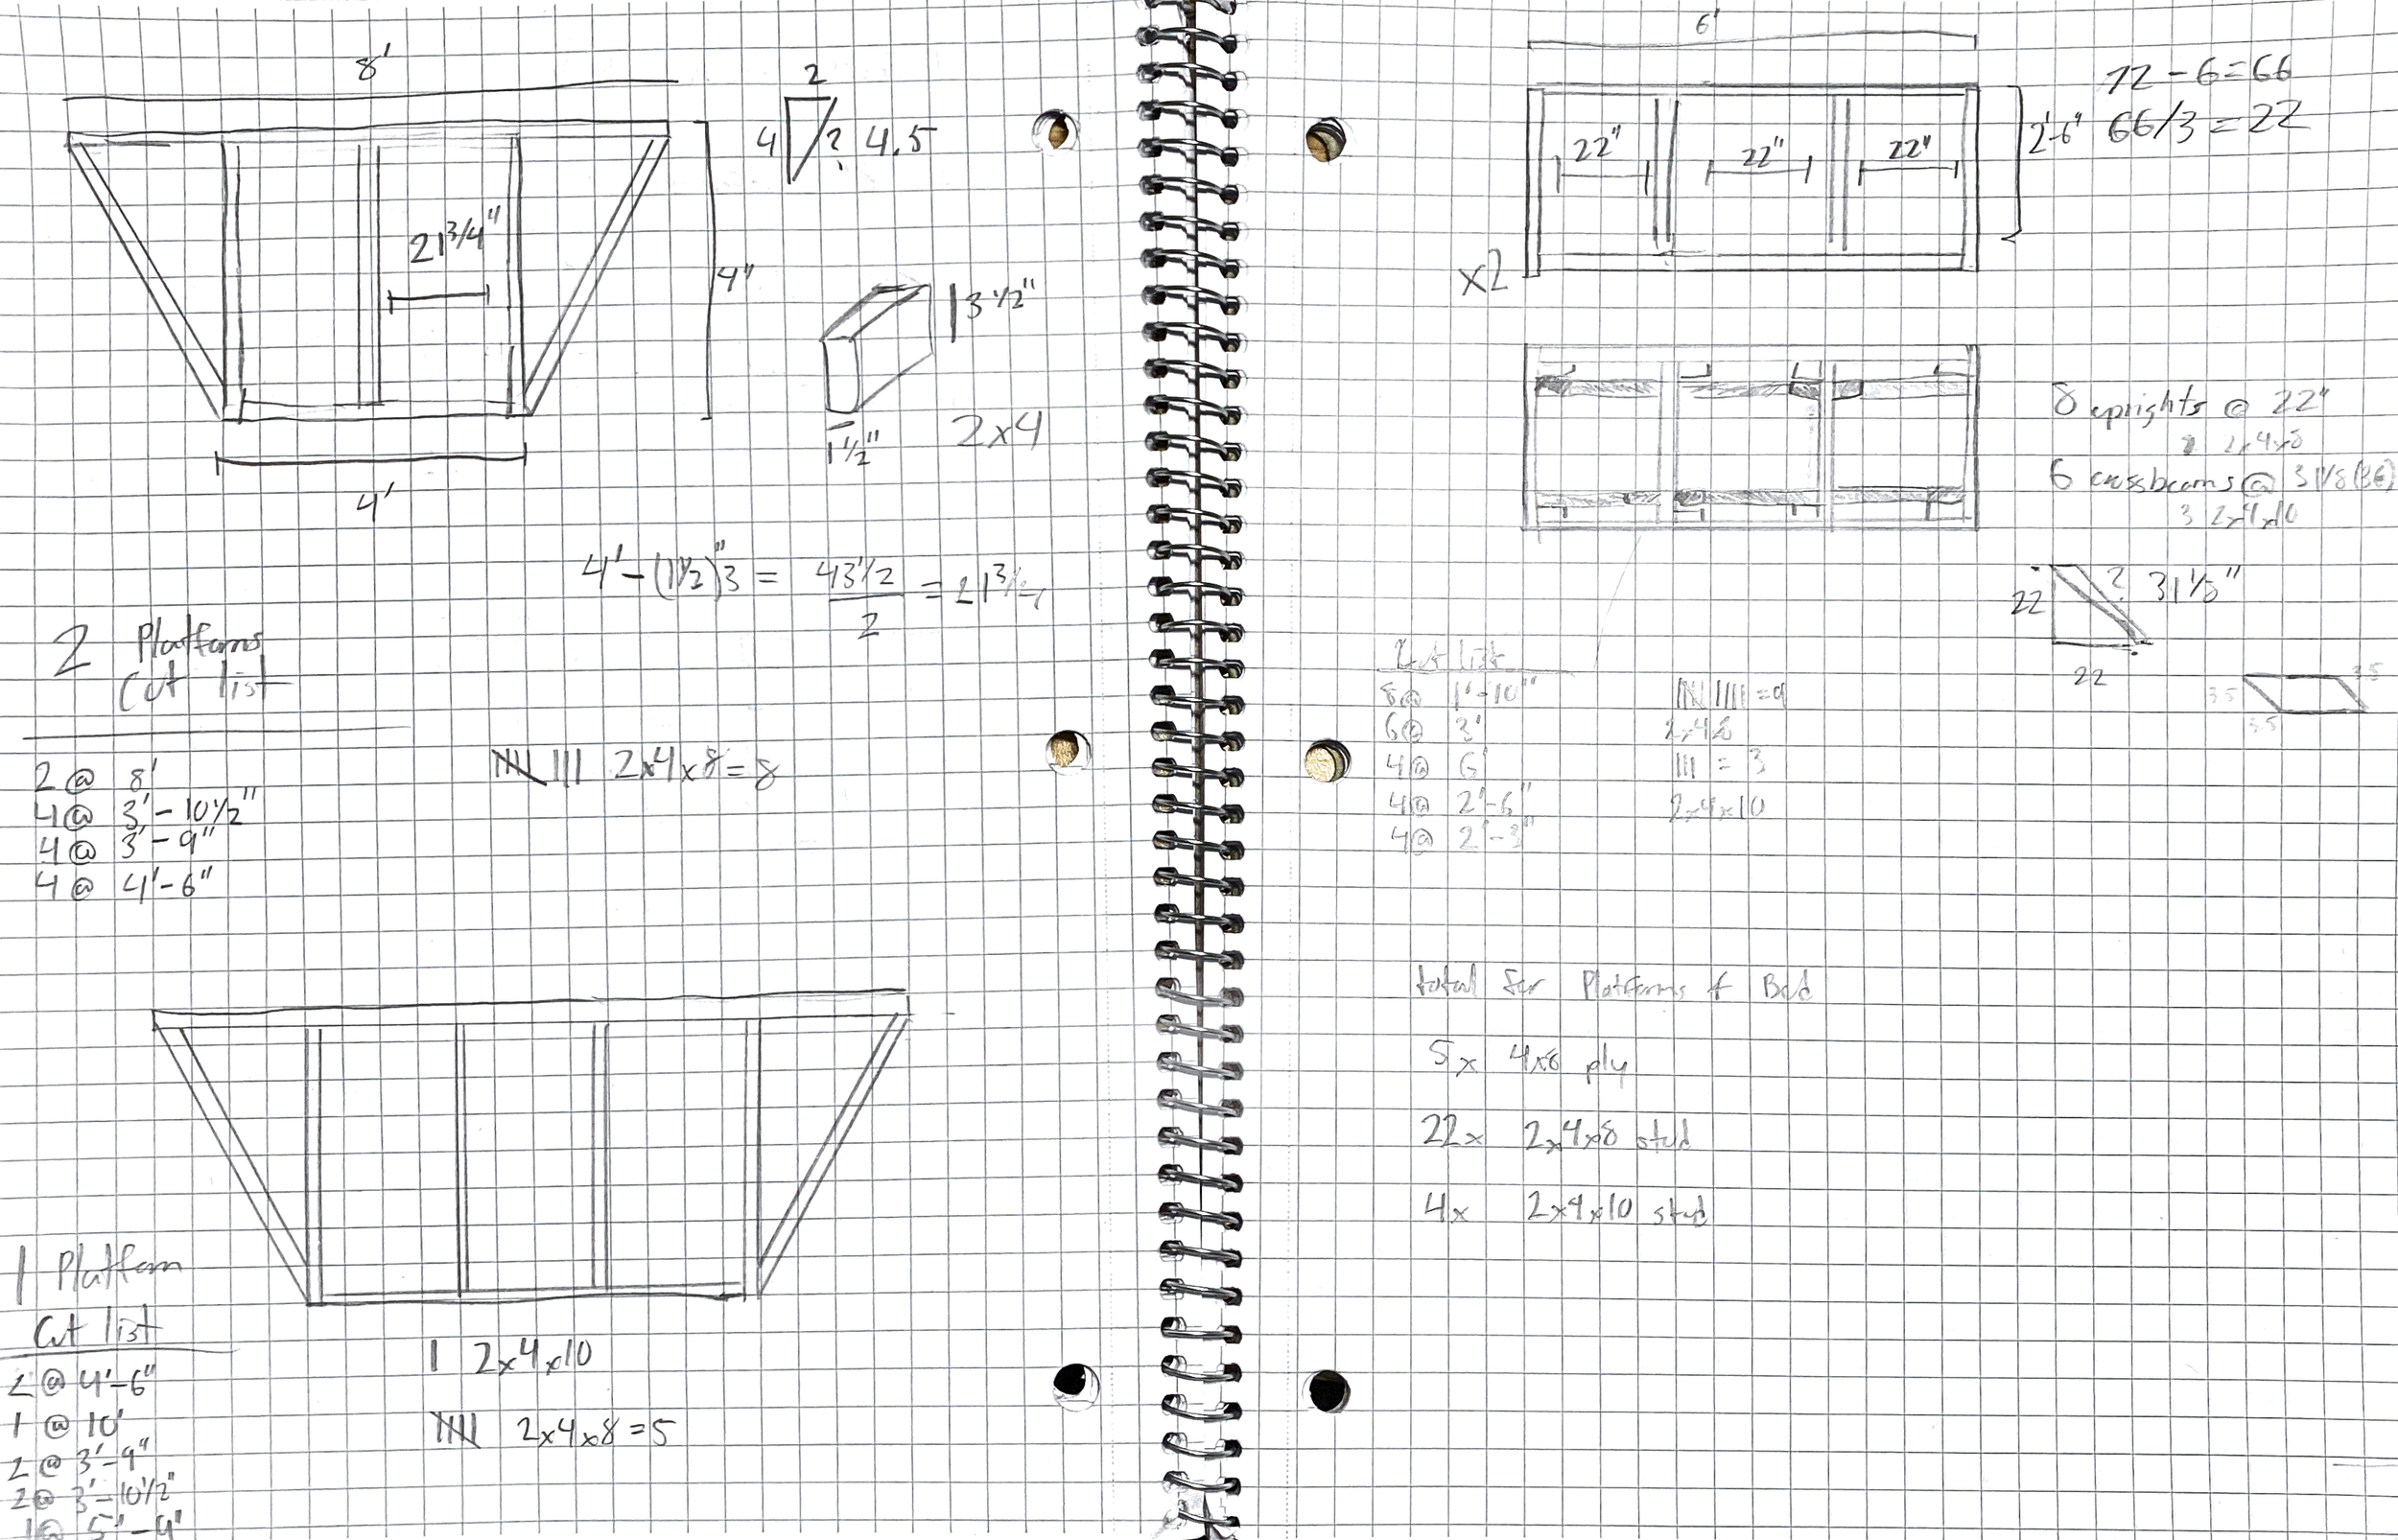 8'
2
4
? 4.5
21 3/4"
4"
3 1/2"
1 1/2"
2x4
4'
4' - (1 1/2)"3 = 43 1/2 / 2 = 21 3/4
2 Platforms
Cut list
2 @ 8'
4 @ 3'-10 1/2"
4 @ 3'-9"
4 @ 4'-6"
2x4x8 = 8
1 Platform
Cut list
2 @ 4'-6"
1 @ 10'
2 @ 3'-9"
2 @ 3'-10 1/2"
1 @ 5'-9"
1 2x4x10
2x4x8 = 5
6'
72 - 6 = 66
66/3 = 22
2'-6"
22"
22"
22"
x2
8 uprights @ 22"
2x4x8
6 crossbeams @ 31 1/8
3 2x4x10
22
?
31 1/8"
22
3.5
3.5
3.5
Cut list
8 @ 1'-10"
= 9
6 @ 3'
2x4x8
4 @ 6'
= 3
4 @ 2'-6"
2x4x10
4 @ 2'-3"
total for Platforms & Bed
5x 4x8 ply
22x 2x4x8 stud
4x 2x4x10 stud